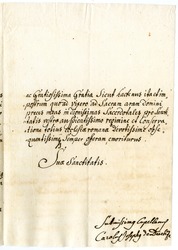 ac Gratiosissima Gratia Sicut hactenus ita etiam
postrum quo ad vixero ad Sacram aram domini
preces meas indignissimas Sacerdotales pro Sanc
titatis vestrae auspicatissimo regimine et Conserva
tione totius Ecclesiae romanae devotissime obse
quentissime Semper offeram emoriturus
Suae Sanctitatis.
humillimus Capellanus
Carolus Josephus